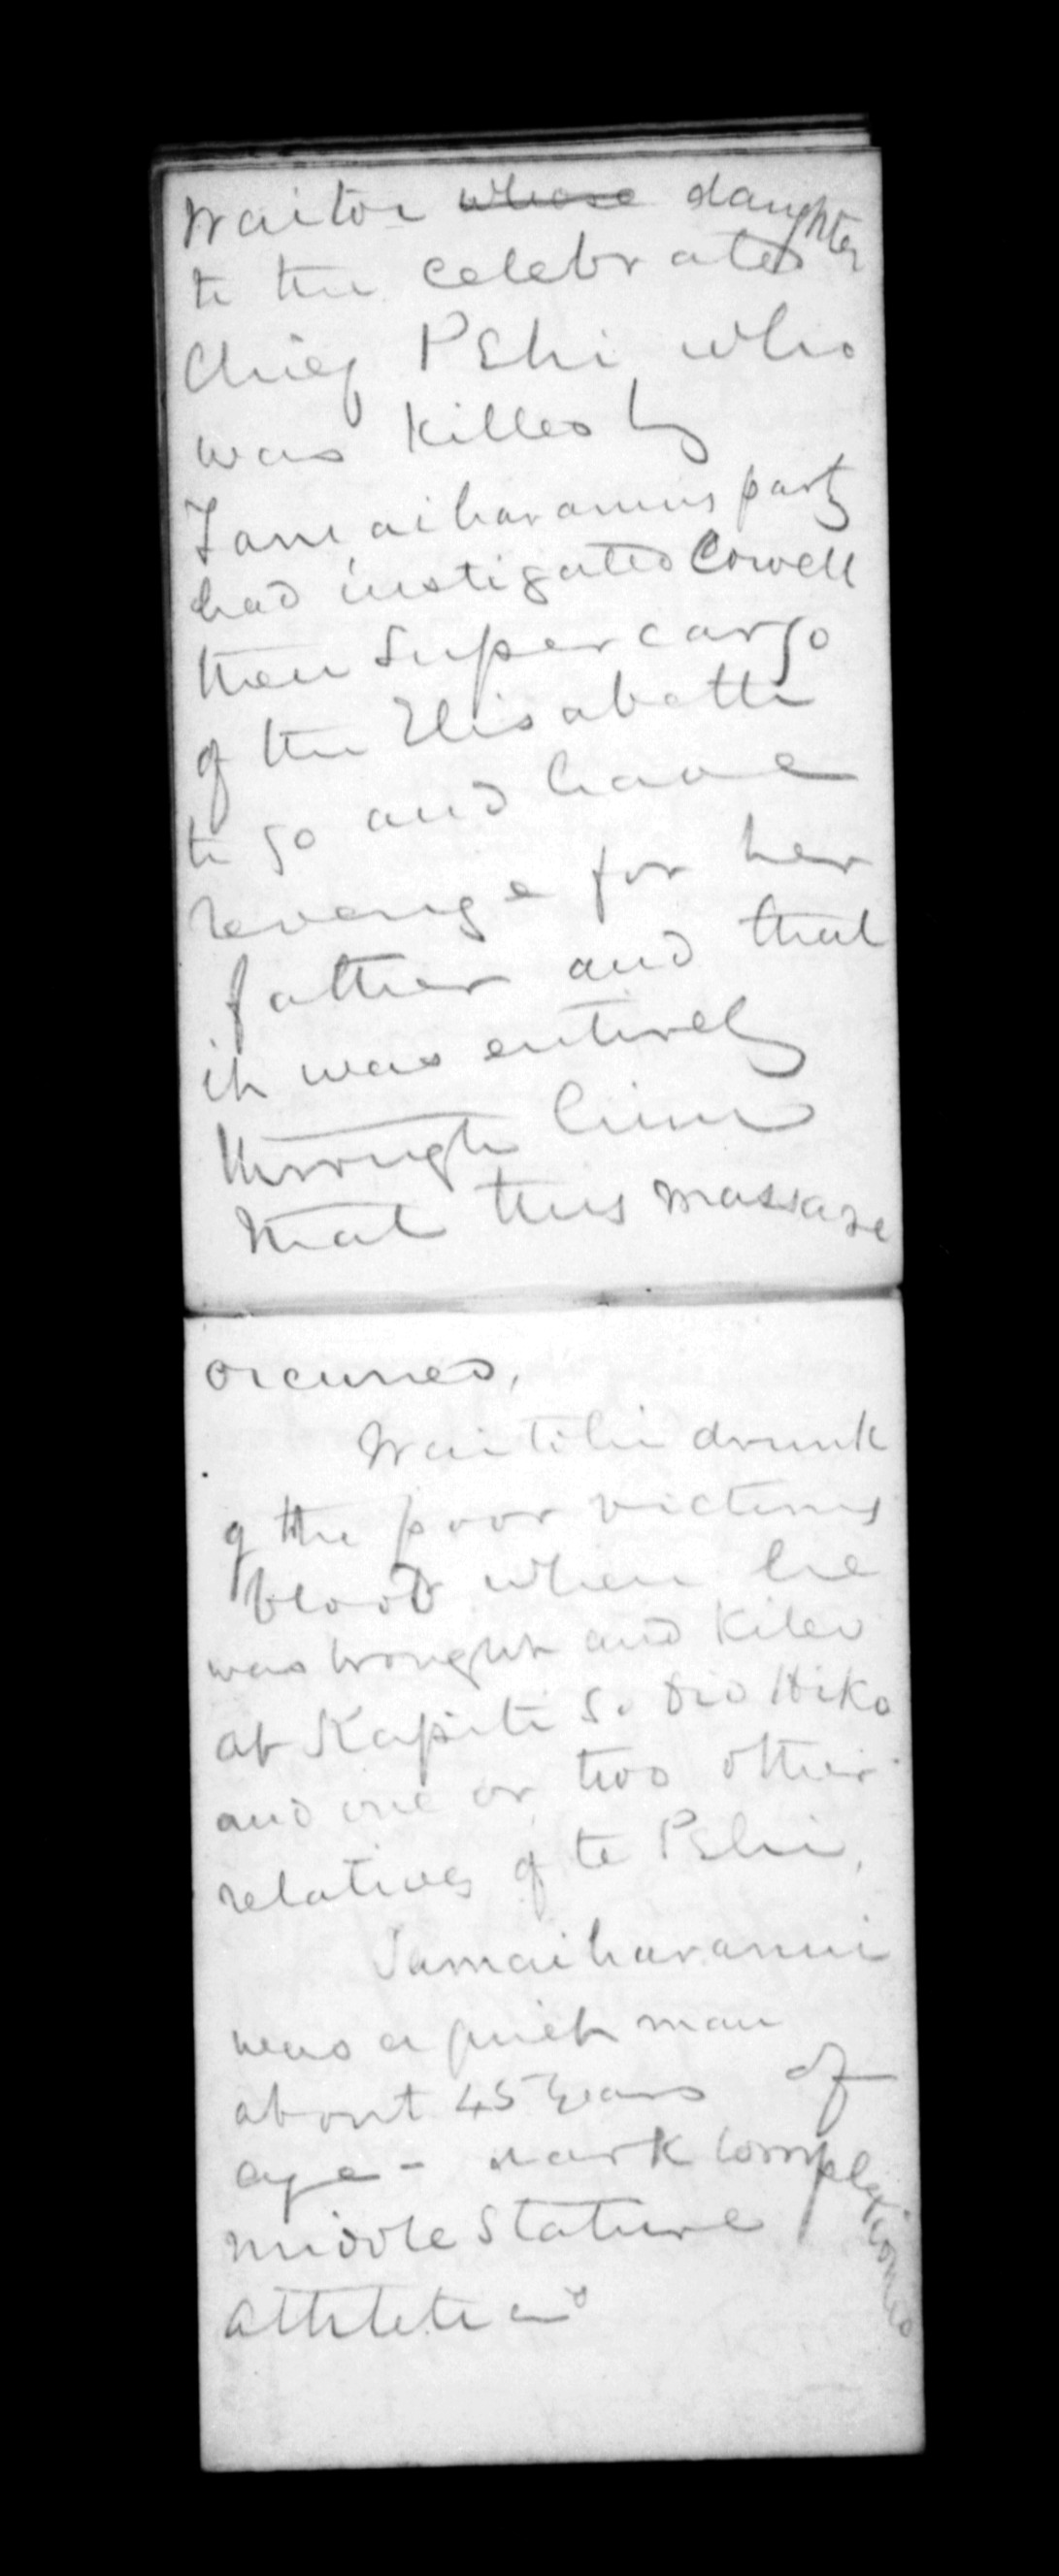 Waitoi whose daughter
to the celebrated
Chief PEhi who
was killed by
Tamaiharanuis party
had instigated Cowell
then Supercargo
of the Elisabeth
to go and have
revenge for her
father and that
it was entirely
through him
that this massacre
occurred,
Waitohi drunk
of the poor victims
blood when he
was brought and killed
at Kapiti so did Hiko
and one or two other
relatives of te PEhi,
Tamaiharanui
was a quiet man
about 45 years of
age - dark complexioned
middle stature
athletic and